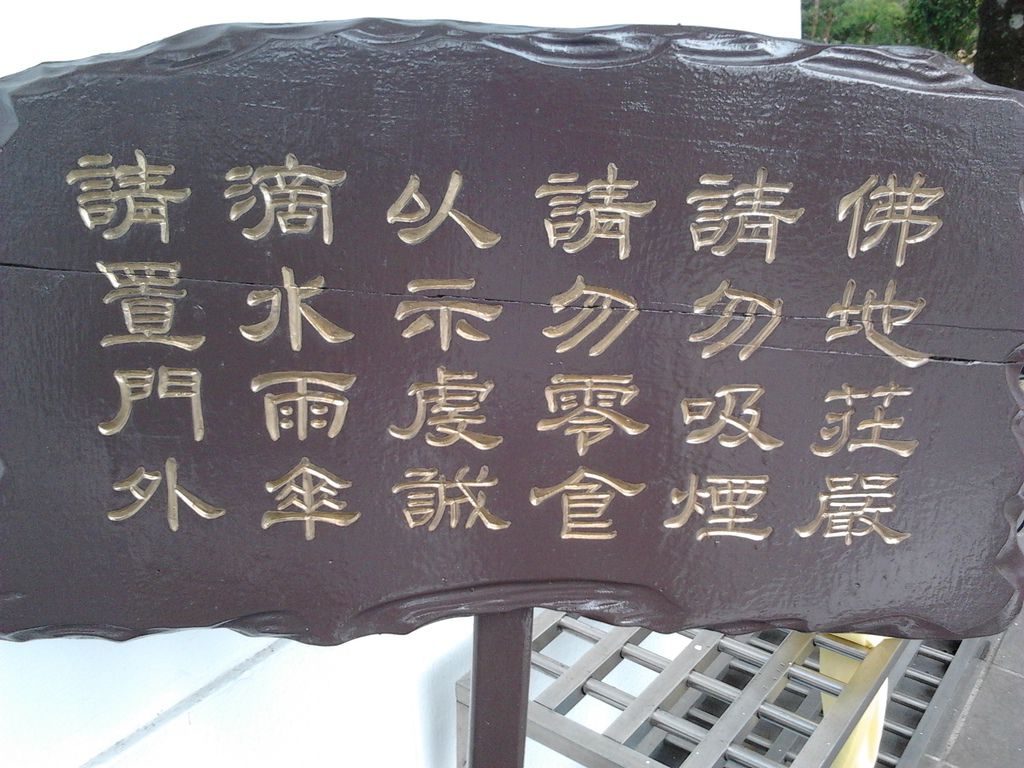 佛地莊嚴
請勿吸煙
請勿零食
以示虔誠
滴水雨傘
請置門外